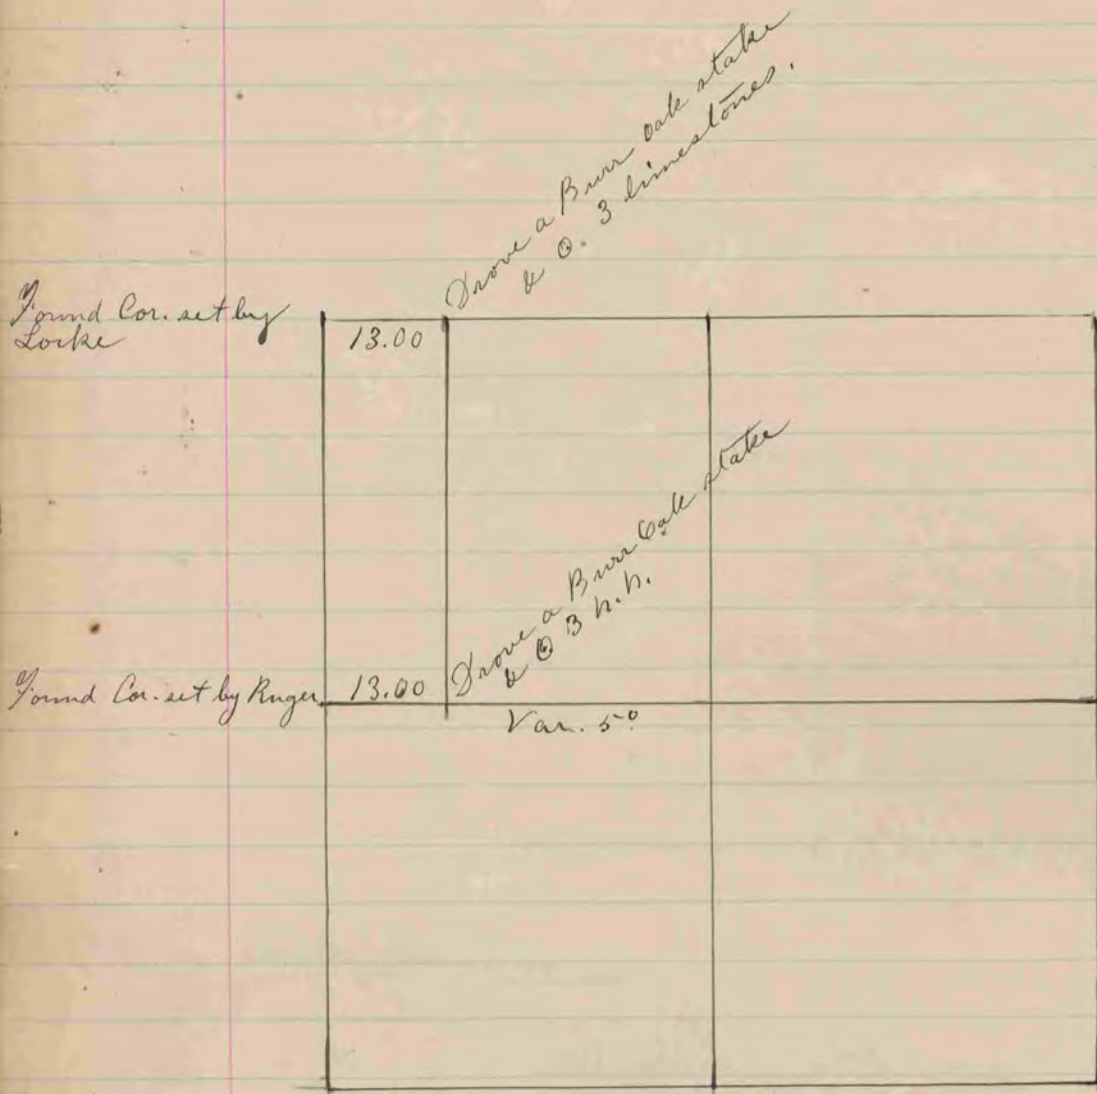 Drove a Burr oak stake
& O. 3 limestones.
Found Cor. set by
Locke
13.00
Drove a Burr Oak stake
& O 3 n.h.
Found Cor. set by Ruger
13.00
Var. 5°